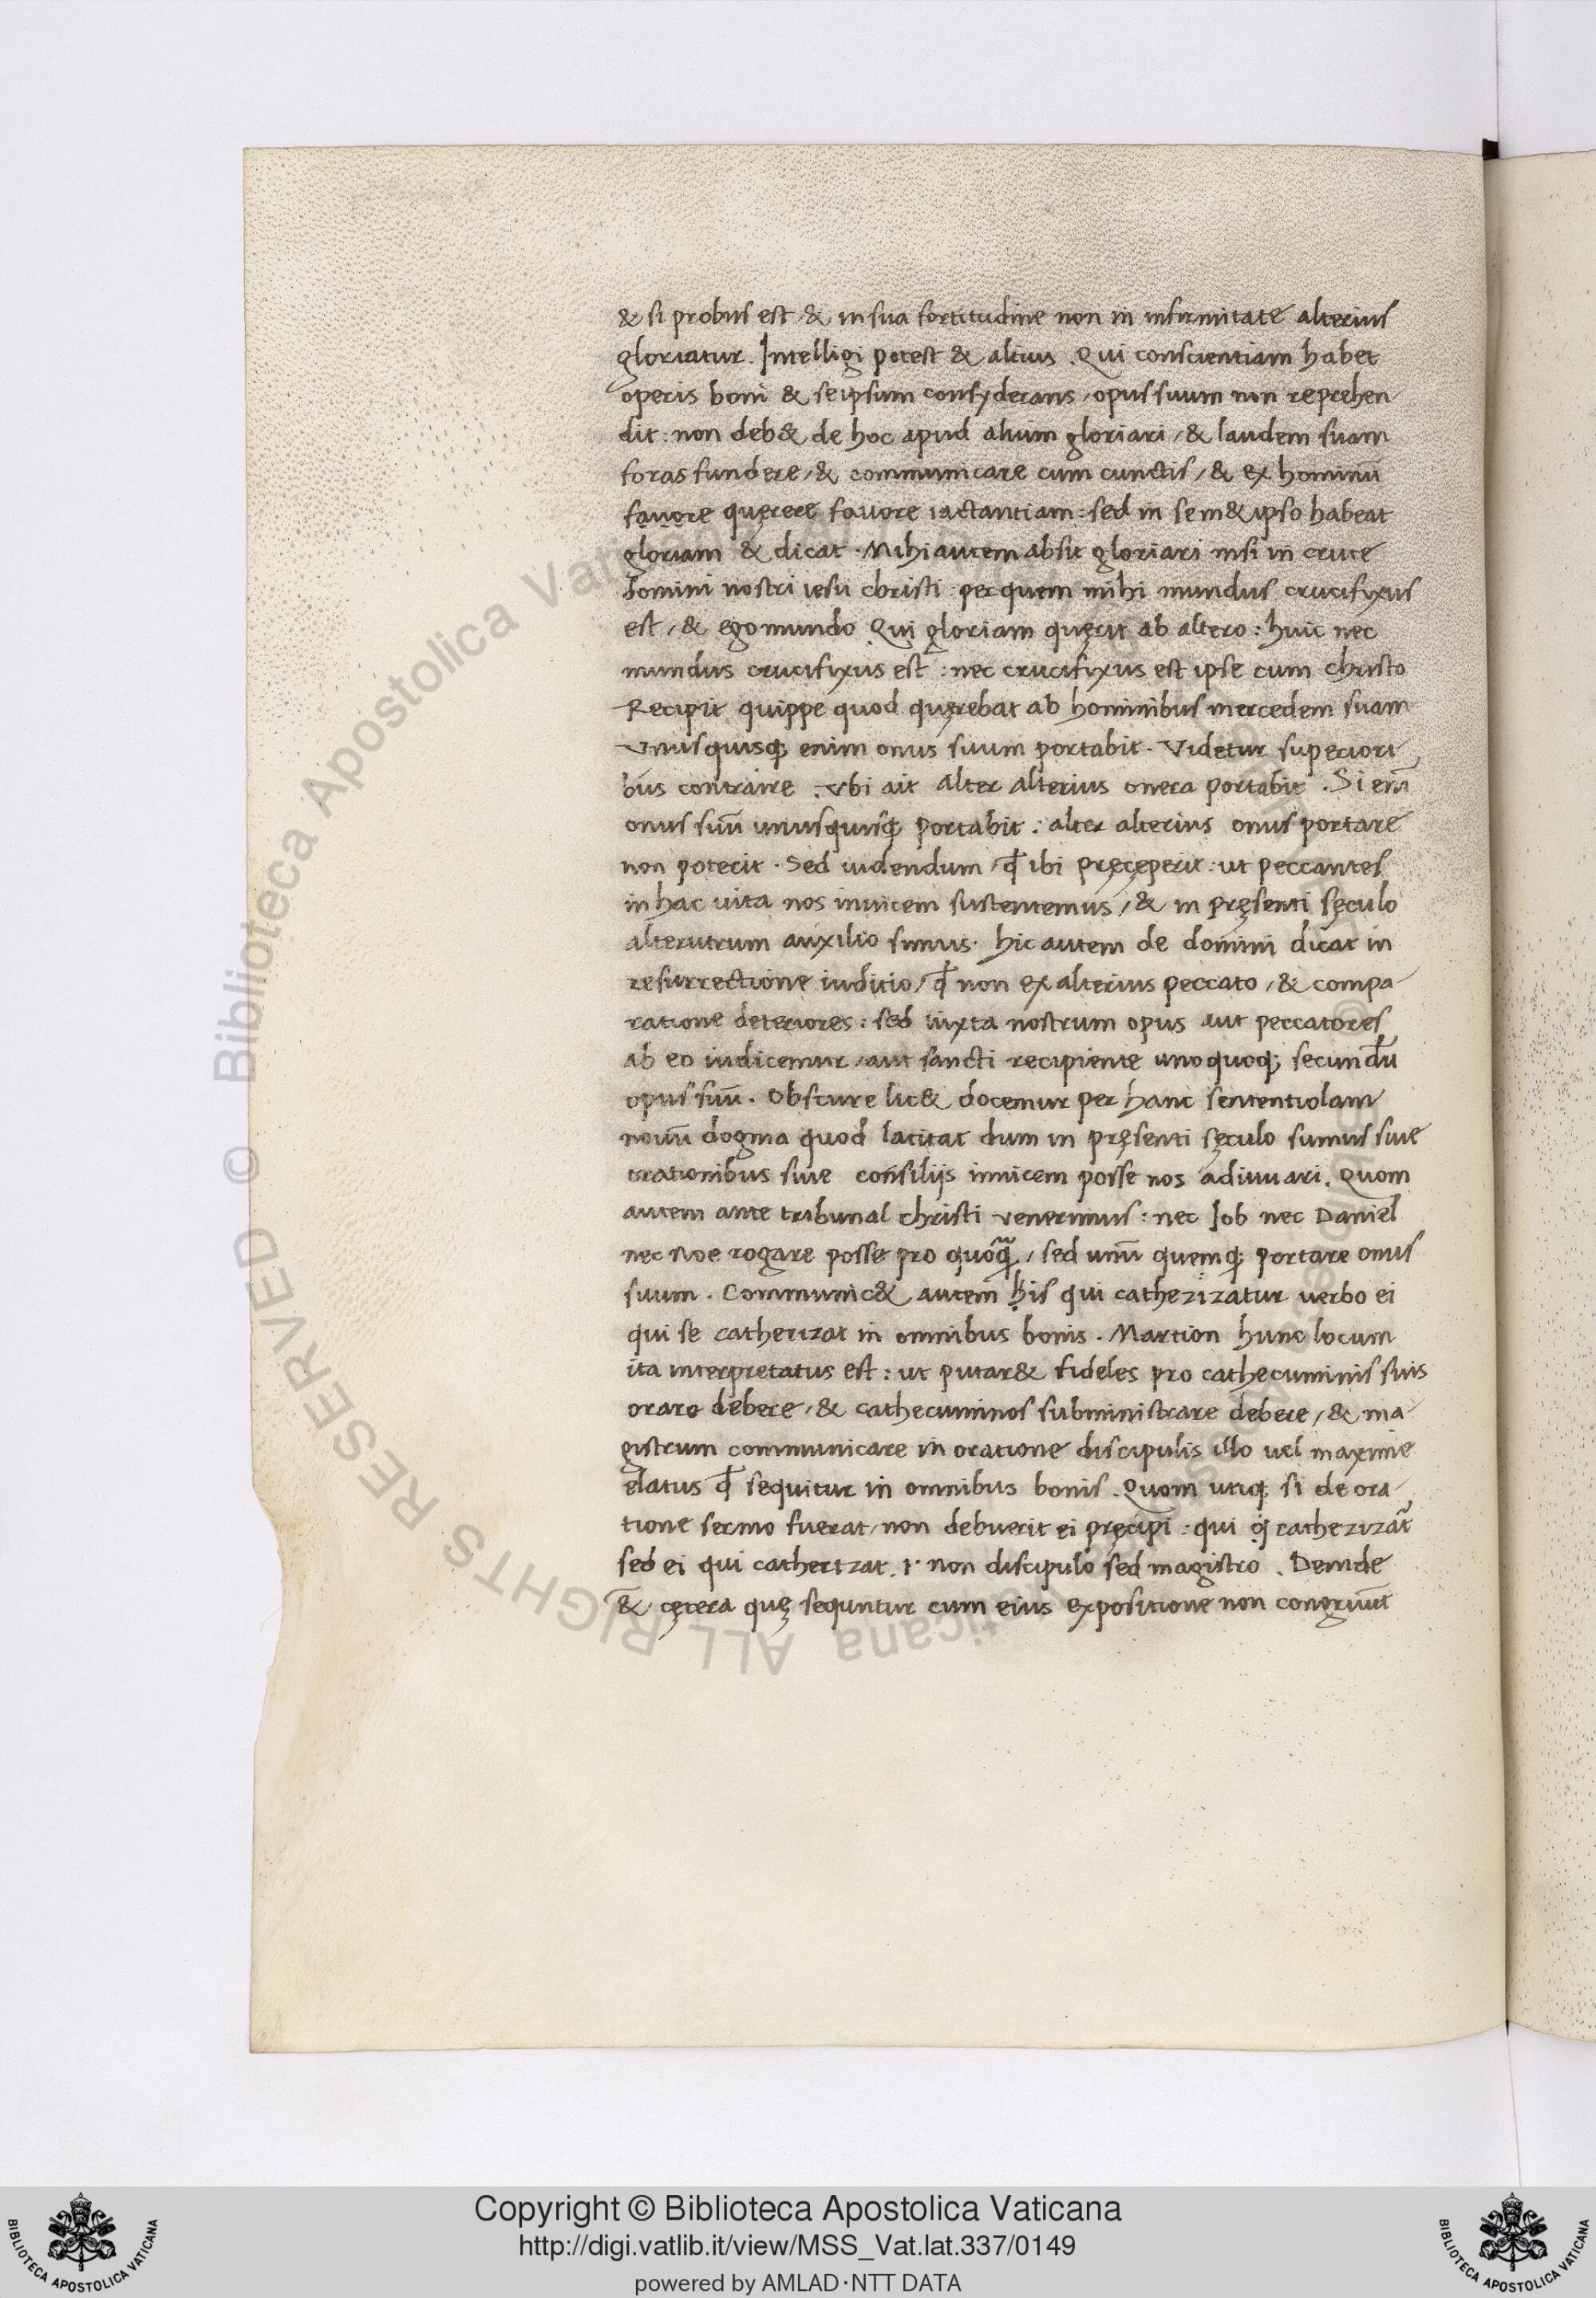 & si probus est / & in sua fortitudine non in infirmitate alterius
gloriatur . Intelligi potest & altius . Qui conscientiam habet
operis boni & seipsum consyderans / opus suum non reprehen
dit : non deb& de hoc apud alium gloriari / & laudem suam
foras fundere / & communicare cum cunctis / & ex hominũ
fauore quęrere fauore iactantiam : sed in sem&ipso habeat
gloriam & dicat . Mihi autem absit gloriari nisi in cruce
domini nostri iesu christi : per quem mihi mundus crucifixus
est / & ego mundo Qui gloriam quęrit ab altero : huic nec
mundus crucifixus est : nec crucifixus est ipse cum christo
Recipit quippe quod quęrebat ab hominibus mercedem suam
Vnusquisq; enim onus suum portabit . Videtur superiori
bus contraire . Vbi ait alter alterius onera portabit . Si em̃
onus suũ unusquisq; portabit : alter alterius onus portare
non poterit . Sed uidendum / qđ ibi pręcęperit : ut peccantes
in hac uita nos inuicem sustentemus / & in pręsenti sęculo
alterutrum auxilio simus . hic autem de domini dicat in
resurrectione iuditio / qđ non ex alterius peccato / & compa
ratione deteriores : sed iuxta nostrum opus aut peccatores
ab eo iudicemur / aut sancti recipiente unoquoq; secundũ
opus suũ . Obscure lic& docemur per hanc sententiolam
nouũ dogma quod latitat dum in pręsenti sęculo sumus siue
orationibus siue consilijs inuicem posse nos adiuuari . Quom
autem ante tribunal christi venerimus : nec Iob nec Daniel
nec Noe rogare posse pro quoq̃ / sed unũ quemq; portare onus
suum . Communic& autem his qui cathezizatur uerbo ei
qui se cathezizat in omnibus bonis . Martion hunc locum
ita interpretatus est : ut putar& fideles pro cathecuminis suis
orare debere / & cathecuminos subministrare debere / & ma
gistrum communicare in oratione discipulis illo uel maxime
elatus qđ sequitur in omnibus bonis . Quom utiq; si de ora
tione sermo fuerat / non debuerit ei pręcipi : qui cathezizat̃
sed ei qui cathezizat . i . non discipulo sed magistro . Deinde
& cętera quę sequntur cum eius expositione non congruũt
© Biblioteca Apostolica Vaticana ALL RIGHTS RESERVED
Copyright © Biblioteca Apostolica Vaticana
http://digi.vatlib.it/view/MSS_Vat.lat.337/0149
powered by AMLAD·NTT DATA
BIBLIOTECA APOSTOLICA VATICANA
BIBLIOTECA APOSTOLICA VATICANA